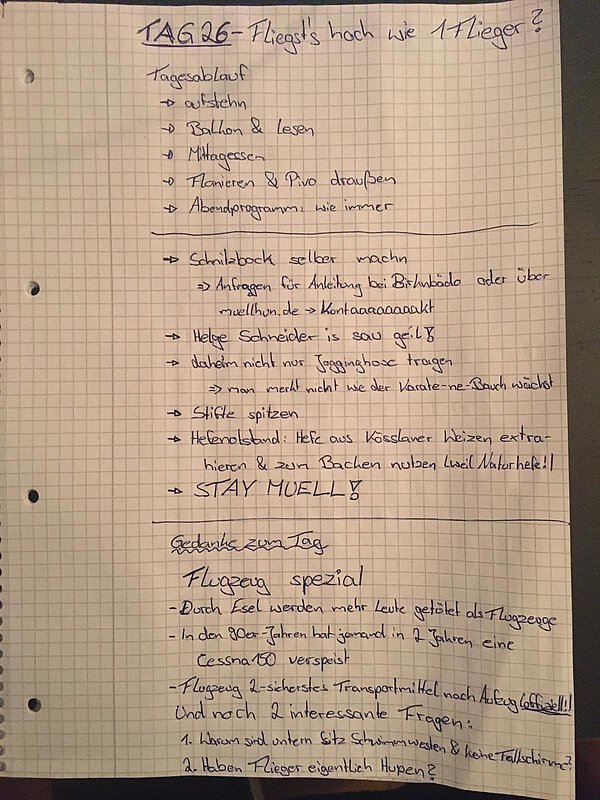 TAG 26 - Fliegst's hoch wie 1 Flieger?
Tagesablauf
→ aufstehn
→ Balkon & Lesen
→ Mittagessen
→ Flanieren & Pivo draußen
→ Abendprogramm: wie immer
→ Schnitzbock selber machn
⇒ Anfragen für Anleitung bei oder über
muellhun.de → Kontaaaaaaaaakt
→ Helge Schneider is sau geil!
→ daheim nicht nur Jogginghose tragen
⇒ man merkt nicht we der Karate-ne-Bauch wächst
→ Stifte spitzen
→ Hefenotstand: Hefe aus Kösslaner Weizen extra-
hieren & zum Backen nutzen (weil Naturhefe!)
→ STAY MUELL!
Gedanke zum Tag
Flugzeug spezial
- Durch Esel werden mehr Leute getötet als Flugzeuge
- In den 90er-Jahren hat jemand in 2 Jahren eine
Cessna 150 verspeist
- Flugzeug 2-sicherstes Transportmittel nach Aufzug (offiziell!)
Und noch 2 interessante Fragen:
1. Warum sind unterm Sitz Schwimmwesten & keine Fallschirme?
2. Haben Flieger eigentlich Hupen?